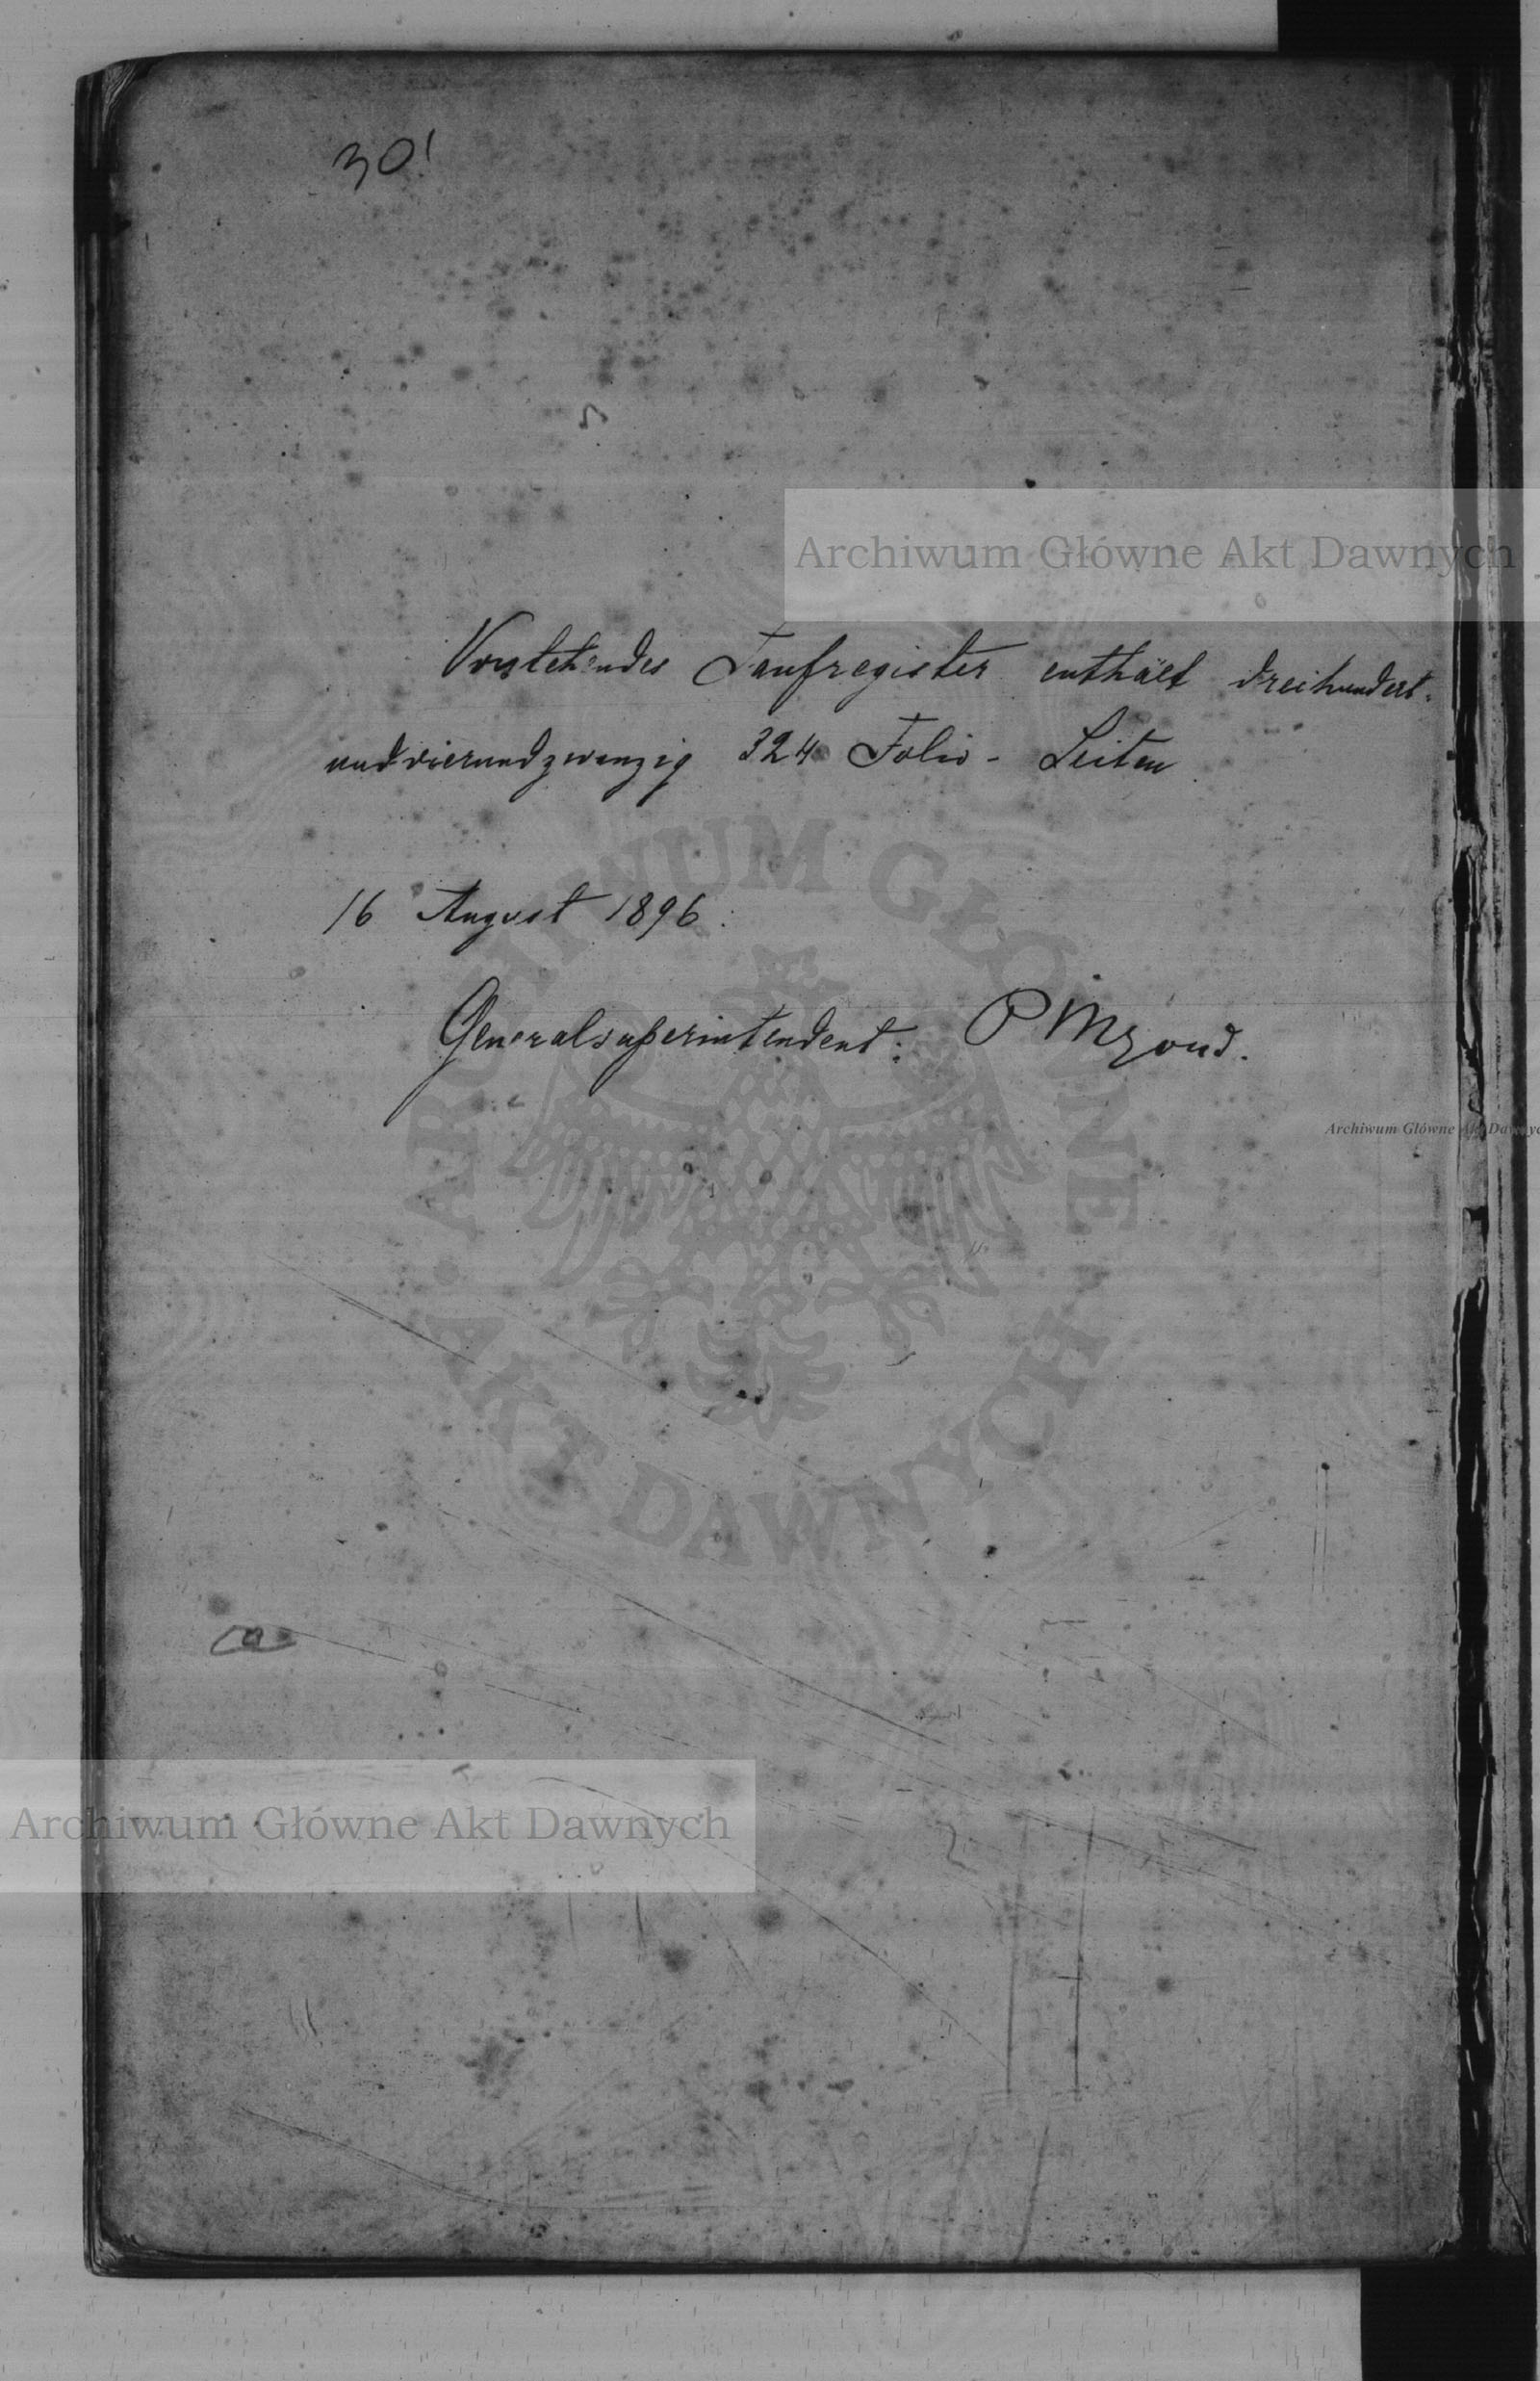 30!
Archiwum Główne Akt Dawnych
Vorstehendes Taufregister enthält dreihundert-
undvierundzwanzig 324 Folio - Seiten
16 August 1896.
Generalsuperintendent:
ARCHIWUM GŁÓWNE
AKT DAWNYCH
Archiwum Główne Akt Dawnyc
Archiwum Główne Akt Dawnych